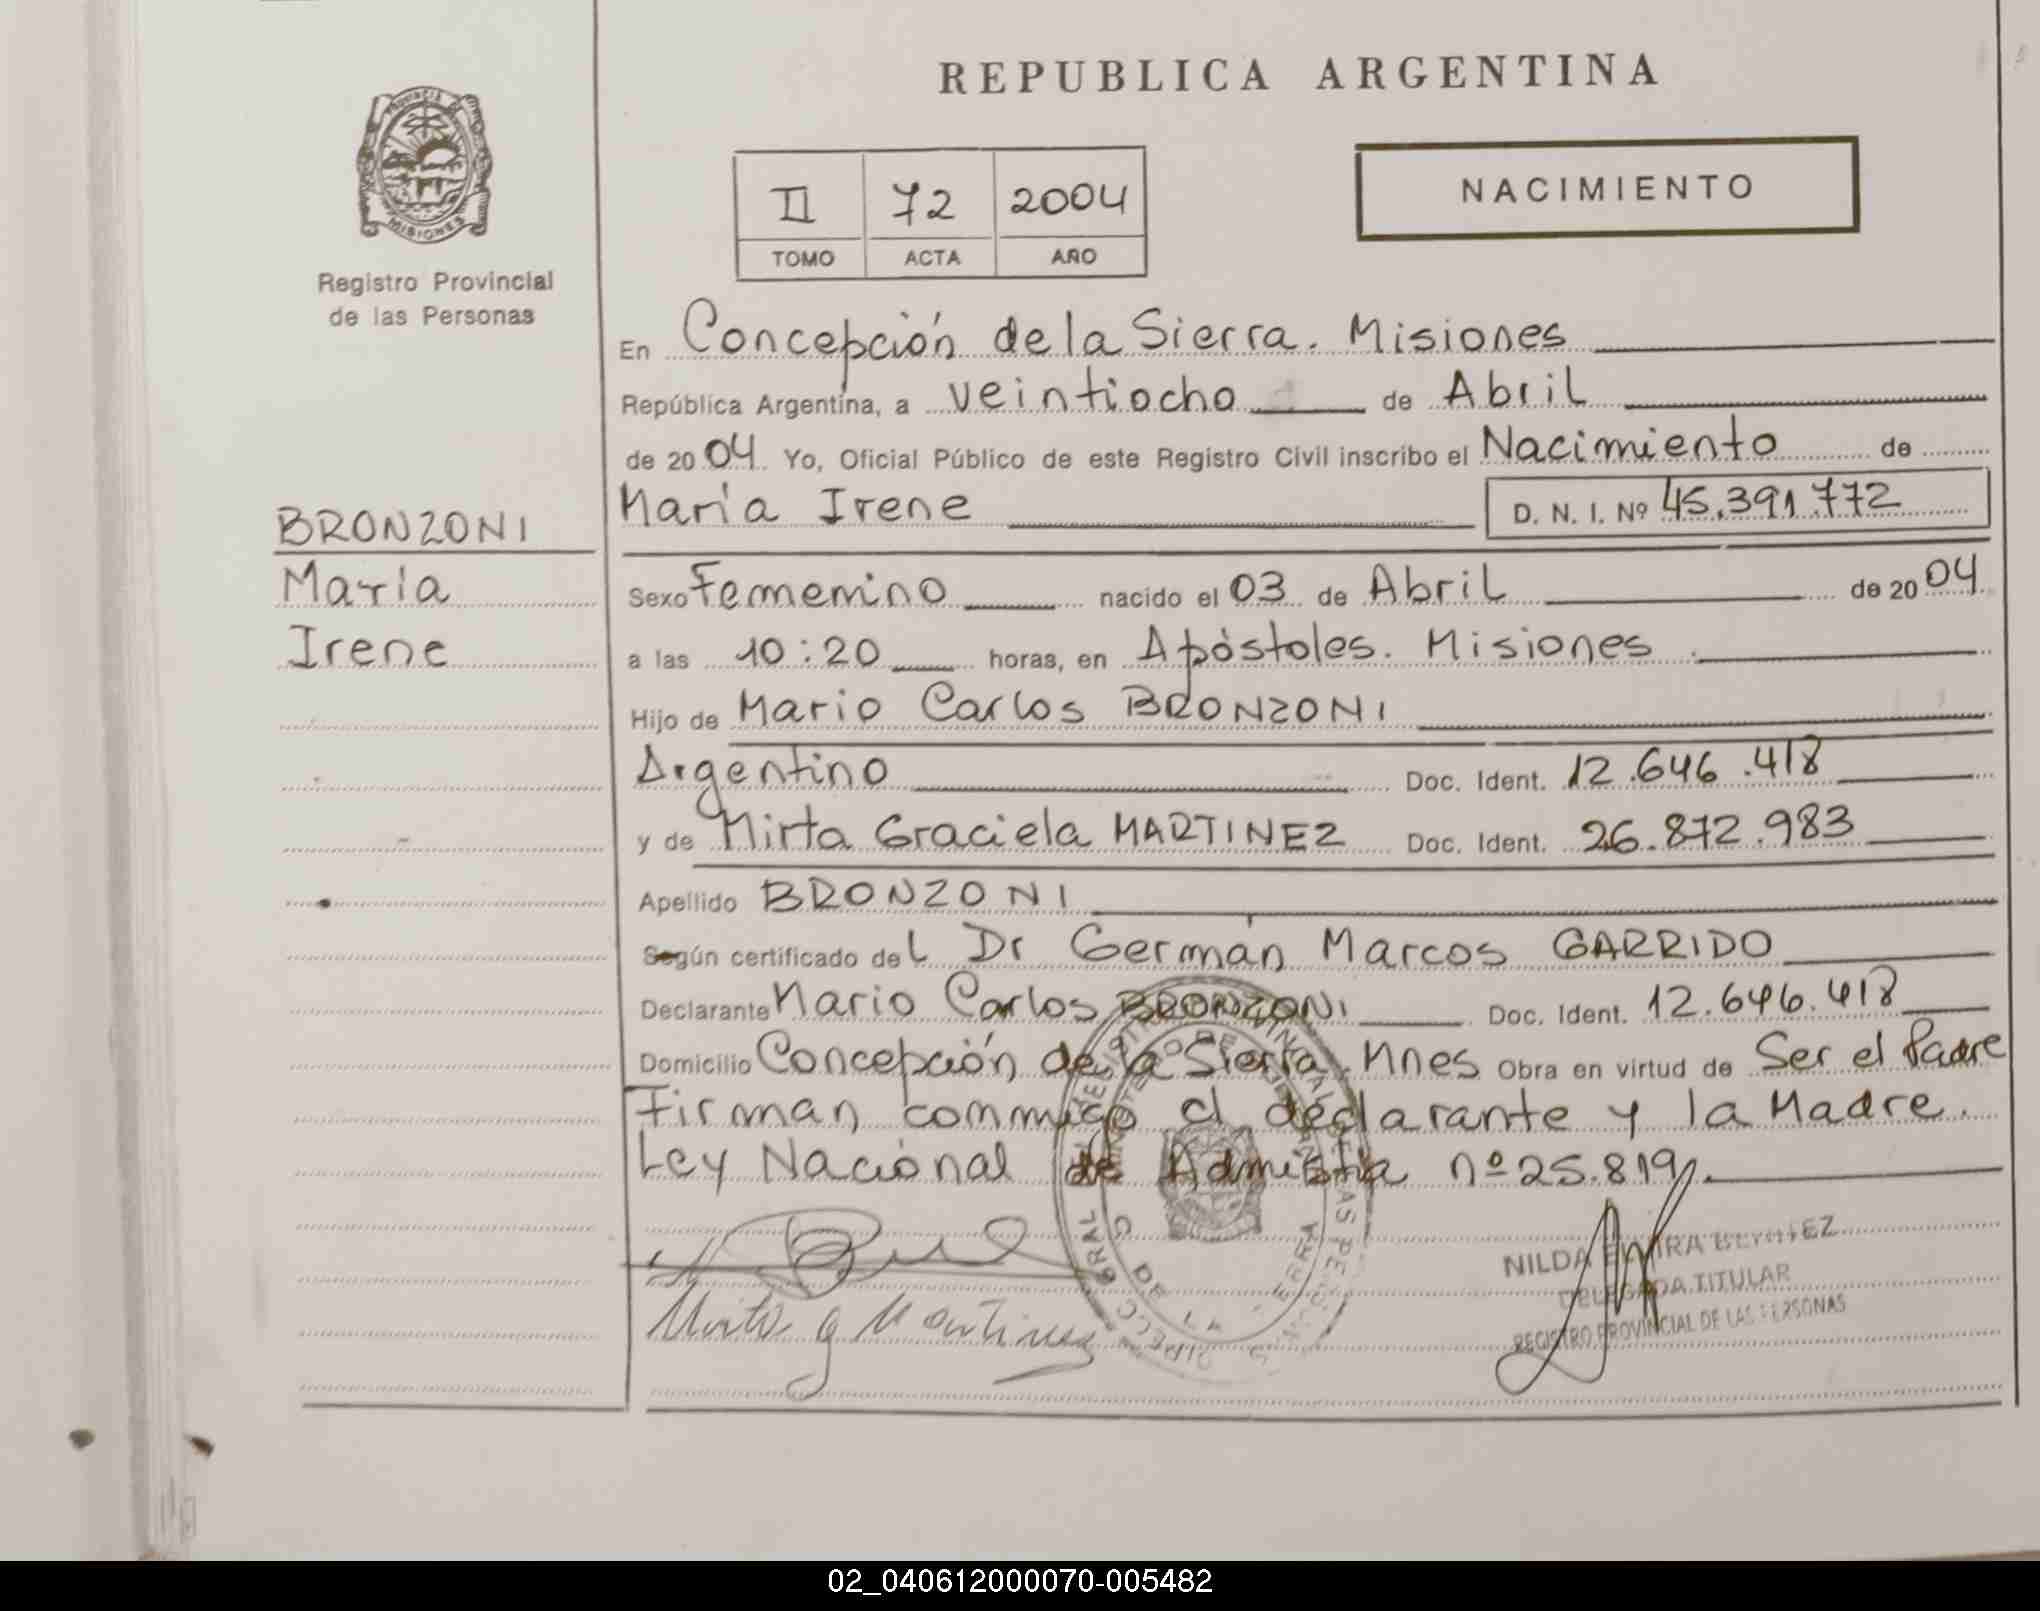 REPUBLICA ARGENTINA
PROVINCIA DE
MISIONES
Registro Provincial
de las Personas
II 72 2004
TOMO ACTA AÑO
NACIMIENTO
En Concepción de la Sierra. Misiones
República Argentina, a veintiocho de Abril
de 2004 Yo, Oficial Público de este Registro Civil inscribo el Nacimiento de
María Irene D. N. I. Nº 45.391.772
BRONZONI
María
Irene
Sexo Femenino nacido el 03 de Abril de 2004
a las 10:20 horas, en Apóstoles. Misiones
Hijo de Mario Carlos BRONZONI
Argentino Doc. Ident. 12.646.418
y de Mirta Graciela MARTINEZ Doc. Ident. 26.872.983
Apellido BRONZONI
Según certificado del Dr Germán Marcos GARRIDO
Declarante Mario Carlos BRONZONI Doc. Ident. 12.646.418
Domicilio Concepción de la Sierra. Mnes Obra en virtud de Ser el Padre
Firman conmigo el declarante y la Madre.
Ley Nacional de Admistia nº 25.819
Mirta g Martinez
NILDA
DELEGADA TITULAR
REGISTRO PROVINCIAL DE LAS PERSONAS
02_040612000070-005482